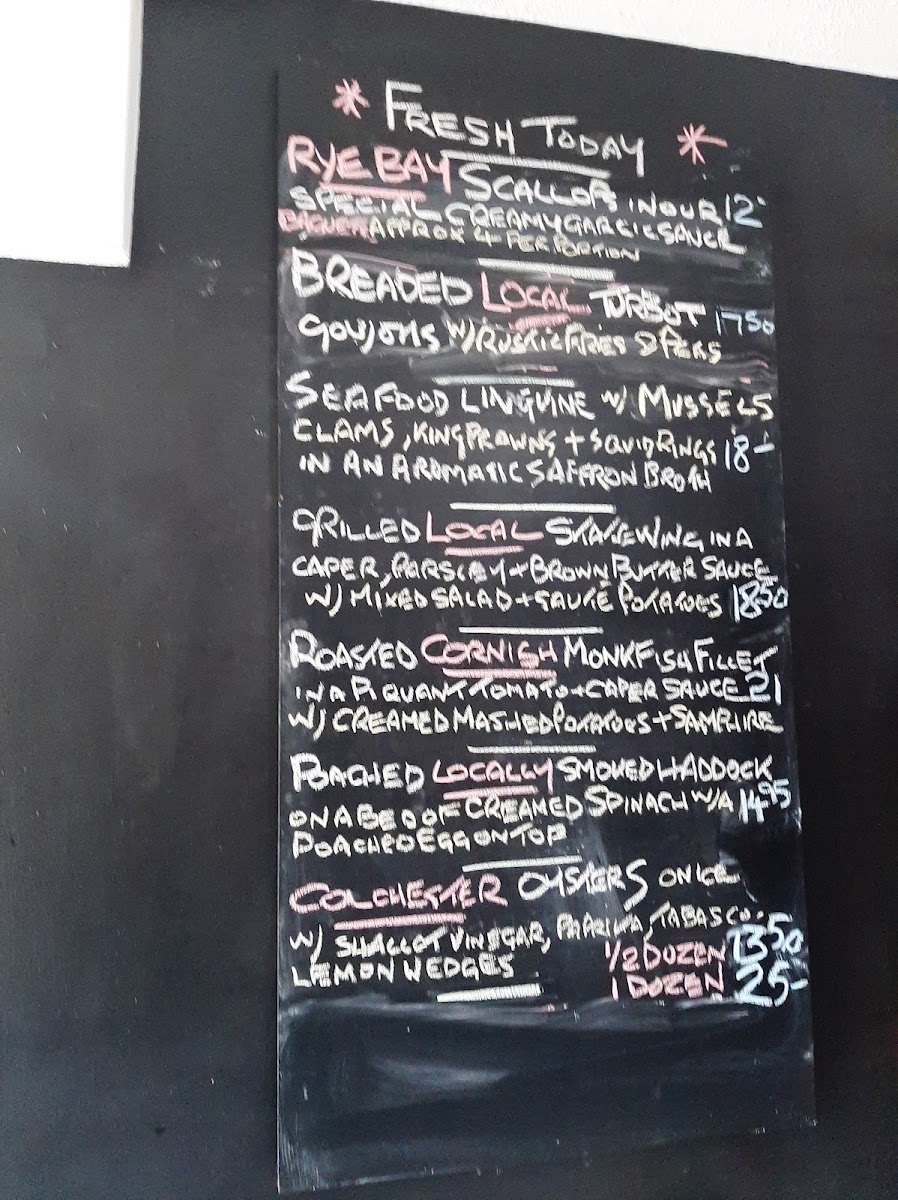 * FRESH TODAY *
RYE BAY SCALLOPS IN OUR 12
SPECIAL CREAMY GARLIC SAUCE
BAGUETTE APPROX 4 PER PORTION
BREADED LOCAL TURBOT 17 50
GOUJONS W/ RUSTIC FRIES & PEAS
SEAFOOD LINGUINE W/ MUSSELS
CLAMS, KING PRAWNS + SQUID RINGS 18-
IN AN AROMATIC SAFFRON BROTH
GRILLED LOCAL SKATE WING IN A
CAPER, PARSLEY + BROWN BUTTER SAUCE
W/ MIXED SALAD + SAUTÉ POTATOES 18 50
ROASTED CORNISH MONKFISH FILLET
IN A PIQUANT TOMATO + CAPER SAUCE 21
W/ CREAMED MASHED POTATOES + SAMPHIRE
POACHED LOCALLY SMOKED HADDOCK
ON A BED OF CREAMED SPINACH W/ A 14 95
POACHED EGG ON TOP
COLCHESTER OYSTERS ON ICE
W/ SHALLOT VINEGAR, PAPRIKA, TABASCO.
LEMON WEDGES 1/2 DOZEN 13 50
1 DOZEN 25-